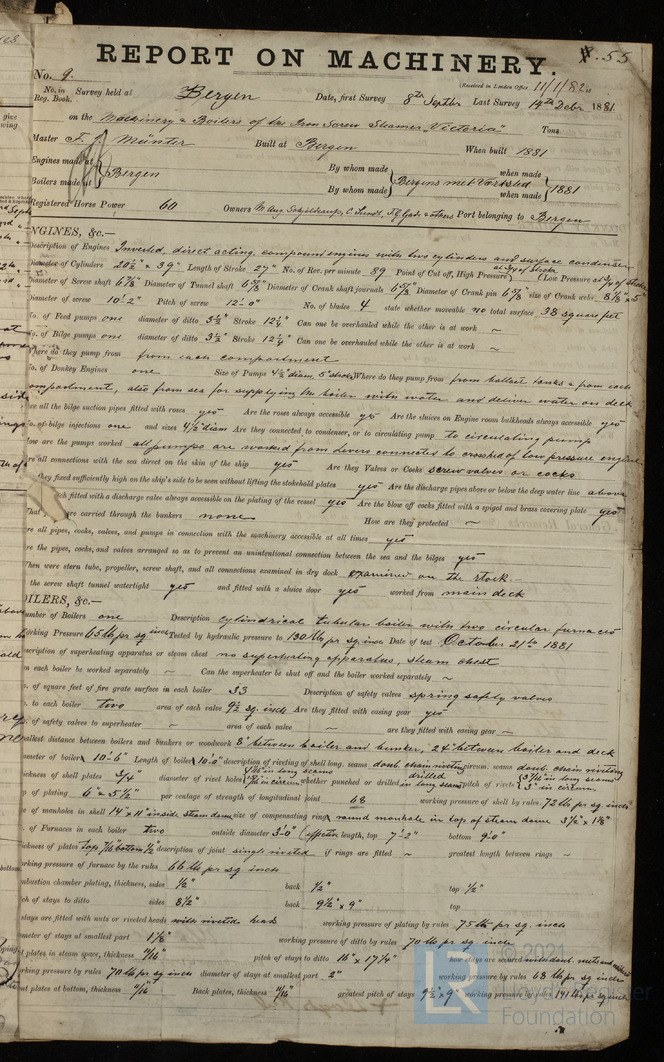 REPORT ON MACHINERY.
No. 9.
No. in Reg. Book. Survey held at Bergen Date, first Survey 8th Septbr Last Survey 14th Decbr 1881
(Received in London Office 11/1/82
on the Machinery & Boilers of the Iron Screw Steamer "Victoria" Tons
Master Münter Built at Bergen When built 1881
Engines made at Bergen By whom made Bergens Met Værksted when made 1881
Boilers made at By whom made when made
Registered Horse Power 60 Owners Port belonging to Bergen
ENGINES, &c.—
Description of Engines Inverted, direct acting, compound engines with two cylinders and surface condenser
Diameter of Cylinders 20½" × 39" Length of Stroke 27" No. of Rev. per minute 89 Point of Cut off, High Pressure at ¾ of Stroke Low Pressure at ¾ of Stroke
Diameter of Screw shaft 6⅞ Diameter of Tunnel shaft 6⅝ Diameter of Crank shaft journals 6⅝ Diameter of Crank pin 6⅞ size of Crank webs 8½ × 5"
Diameter of screw 10'-2" Pitch of screw 12'-0" No. of blades 4 state whether moveable no total surface 38 square feet
No. of Feed pumps one diameter of ditto 3½" Stroke 12¼" Can one be overhauled while the other is at work ~
No. of Bilge pumps one diameter of ditto 3½" Stroke 12¼" Can one be overhauled while the other is at work ~
Where do they pump from from each compartment
No. of Donkey Engines one Size of Pumps 4½" diam, 5" stroke Where do they pump from from ballast tanks & from each
compartment, also from sea for supplying the boiler with water and deliver water on deck
Are all the bilge suction pipes fitted with roses yes Are the roses always accessible yes Are the sluices on Engine room bulkheads always accessible yes
No. of bilge injections one and sizes 4½" diam Are they connected to condenser, or to circulating pump to circulating pump
How are the pumps worked all pumps are worked from levers connected to crosshead of low pressure engine
Are all connections with the sea direct on the skin of the ship yes Are they Valves or Cocks screw valves or cocks
they fixed sufficiently high on the ship's side to be seen without lifting the stokehold plates yes Are the discharge pipes above or below the deep water line above
fitted with a discharge valve always accessible on the plating of the vessel yes Are the blow off cocks fitted with a spigot and brass covering plate yes
What are carried through the bunkers none How are they protected ~
Are all pipes, cocks, valves, and pumps in connection with the machinery accessible at all times yes
Are the pipes, cocks, and valves arranged so as to prevent an unintentional connection between the sea and the bilges yes
When were stern tube, propeller, screw shaft, and all connections examined in dry dock examined on the stock.
the screw shaft tunnel watertight yes and fitted with a sluice door yes worked from main deck
BOILERS, &c.—
Number of Boilers one Description cylindrical tubular boiler with two circular furnaces
Working Pressure 65 lb pr sq inch Tested by hydraulic pressure to 130 lb pr sq. inch Date of test October 21st 1881
Description of superheating apparatus or steam chest no superheating apparatus, steam chest
each boiler be worked separately ~ Can the superheater be shut off and the boiler worked separately ~
No. of square feet of fire grate surface in each boiler 33 Description of safety valves spring safety valves
No. to each boiler two area of each valve 9½ sq. inch Are they fitted with easing gear yes
No. of safety valves to superheater ~ area of each valve ~ are they fitted with easing gear ~
Smallest distance between boilers and bunkers or woodwork 8" between boiler and bunker, 24" between boiler and deck
Diameter of boilers 10'-6" Length of boilers 10'-0" description of riveting of shell long. seams doub chain riveting circum. seams doub chain riveting
Thickness of shell plates ¾" diameter of rivet holes whether punched or drilled drilled in long seams pitch of rivets
Lap of plating 6" & 5⅛" per centage of strength of longitudinal joint 68 working pressure of shell by rules 72 lb pr sq. inch
of manholes in shell 14" × 11" inside steam dome size of compensating ring round manhole in top of steam dome
No. of Furnaces in each boiler two outside diameter 3'-0" length, top 7'-2" bottom 9'-0"
Thickness of plates top 7/16 bottom ½" description of joint single riveted if rings are fitted ~ greatest length between rings ~
Working pressure of furnace by the rules 66 lb pr sq inch
Combustion chamber plating, thickness, sides ½" back ½" top ½"
Pitch of stays to ditto sides 8½" back 9½" × 9" top
stays are fitted with nuts or riveted heads with riveted head working pressure of plating by rules 75 lb pr sq. inch
Diameter of stays at smallest part 1⅛" working pressure of ditto by rules 70 lb pr sq inch
plates in steam space, thickness 11/16" pitch of stays to ditto 16" × 17¼" how stays are secured with doub. nuts and
Working pressure by rules 70 lb pr sq inch diameter of stays at smallest part 2" working pressure by rules 68 lb pr sq inch
Front plates at bottom, thickness 11/16 Back plates, thickness 11/16 greatest pitch of stays 9½" × 9" working pressure by rules 141 lb pr sq inch
© 2021
LR
Lloyd's Register
Foundation